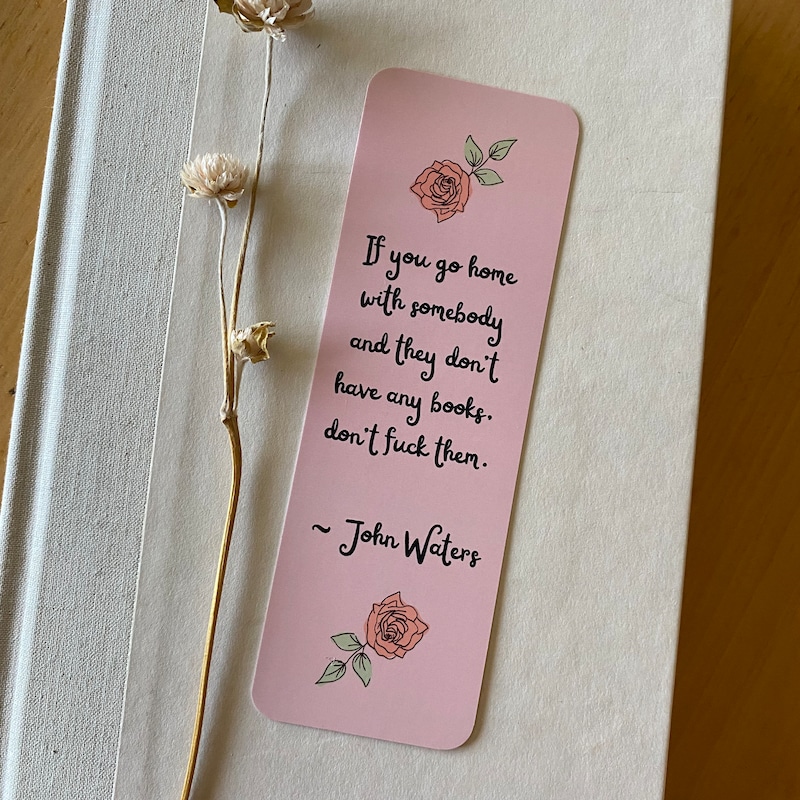 If you go home
with somebody
and they don't
have any books,
don't fuck them.
~ John Waters